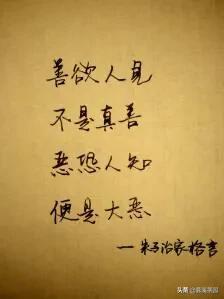 善欲人見
不是真善
恶恐人知
便是大恶
一朱子治家格言